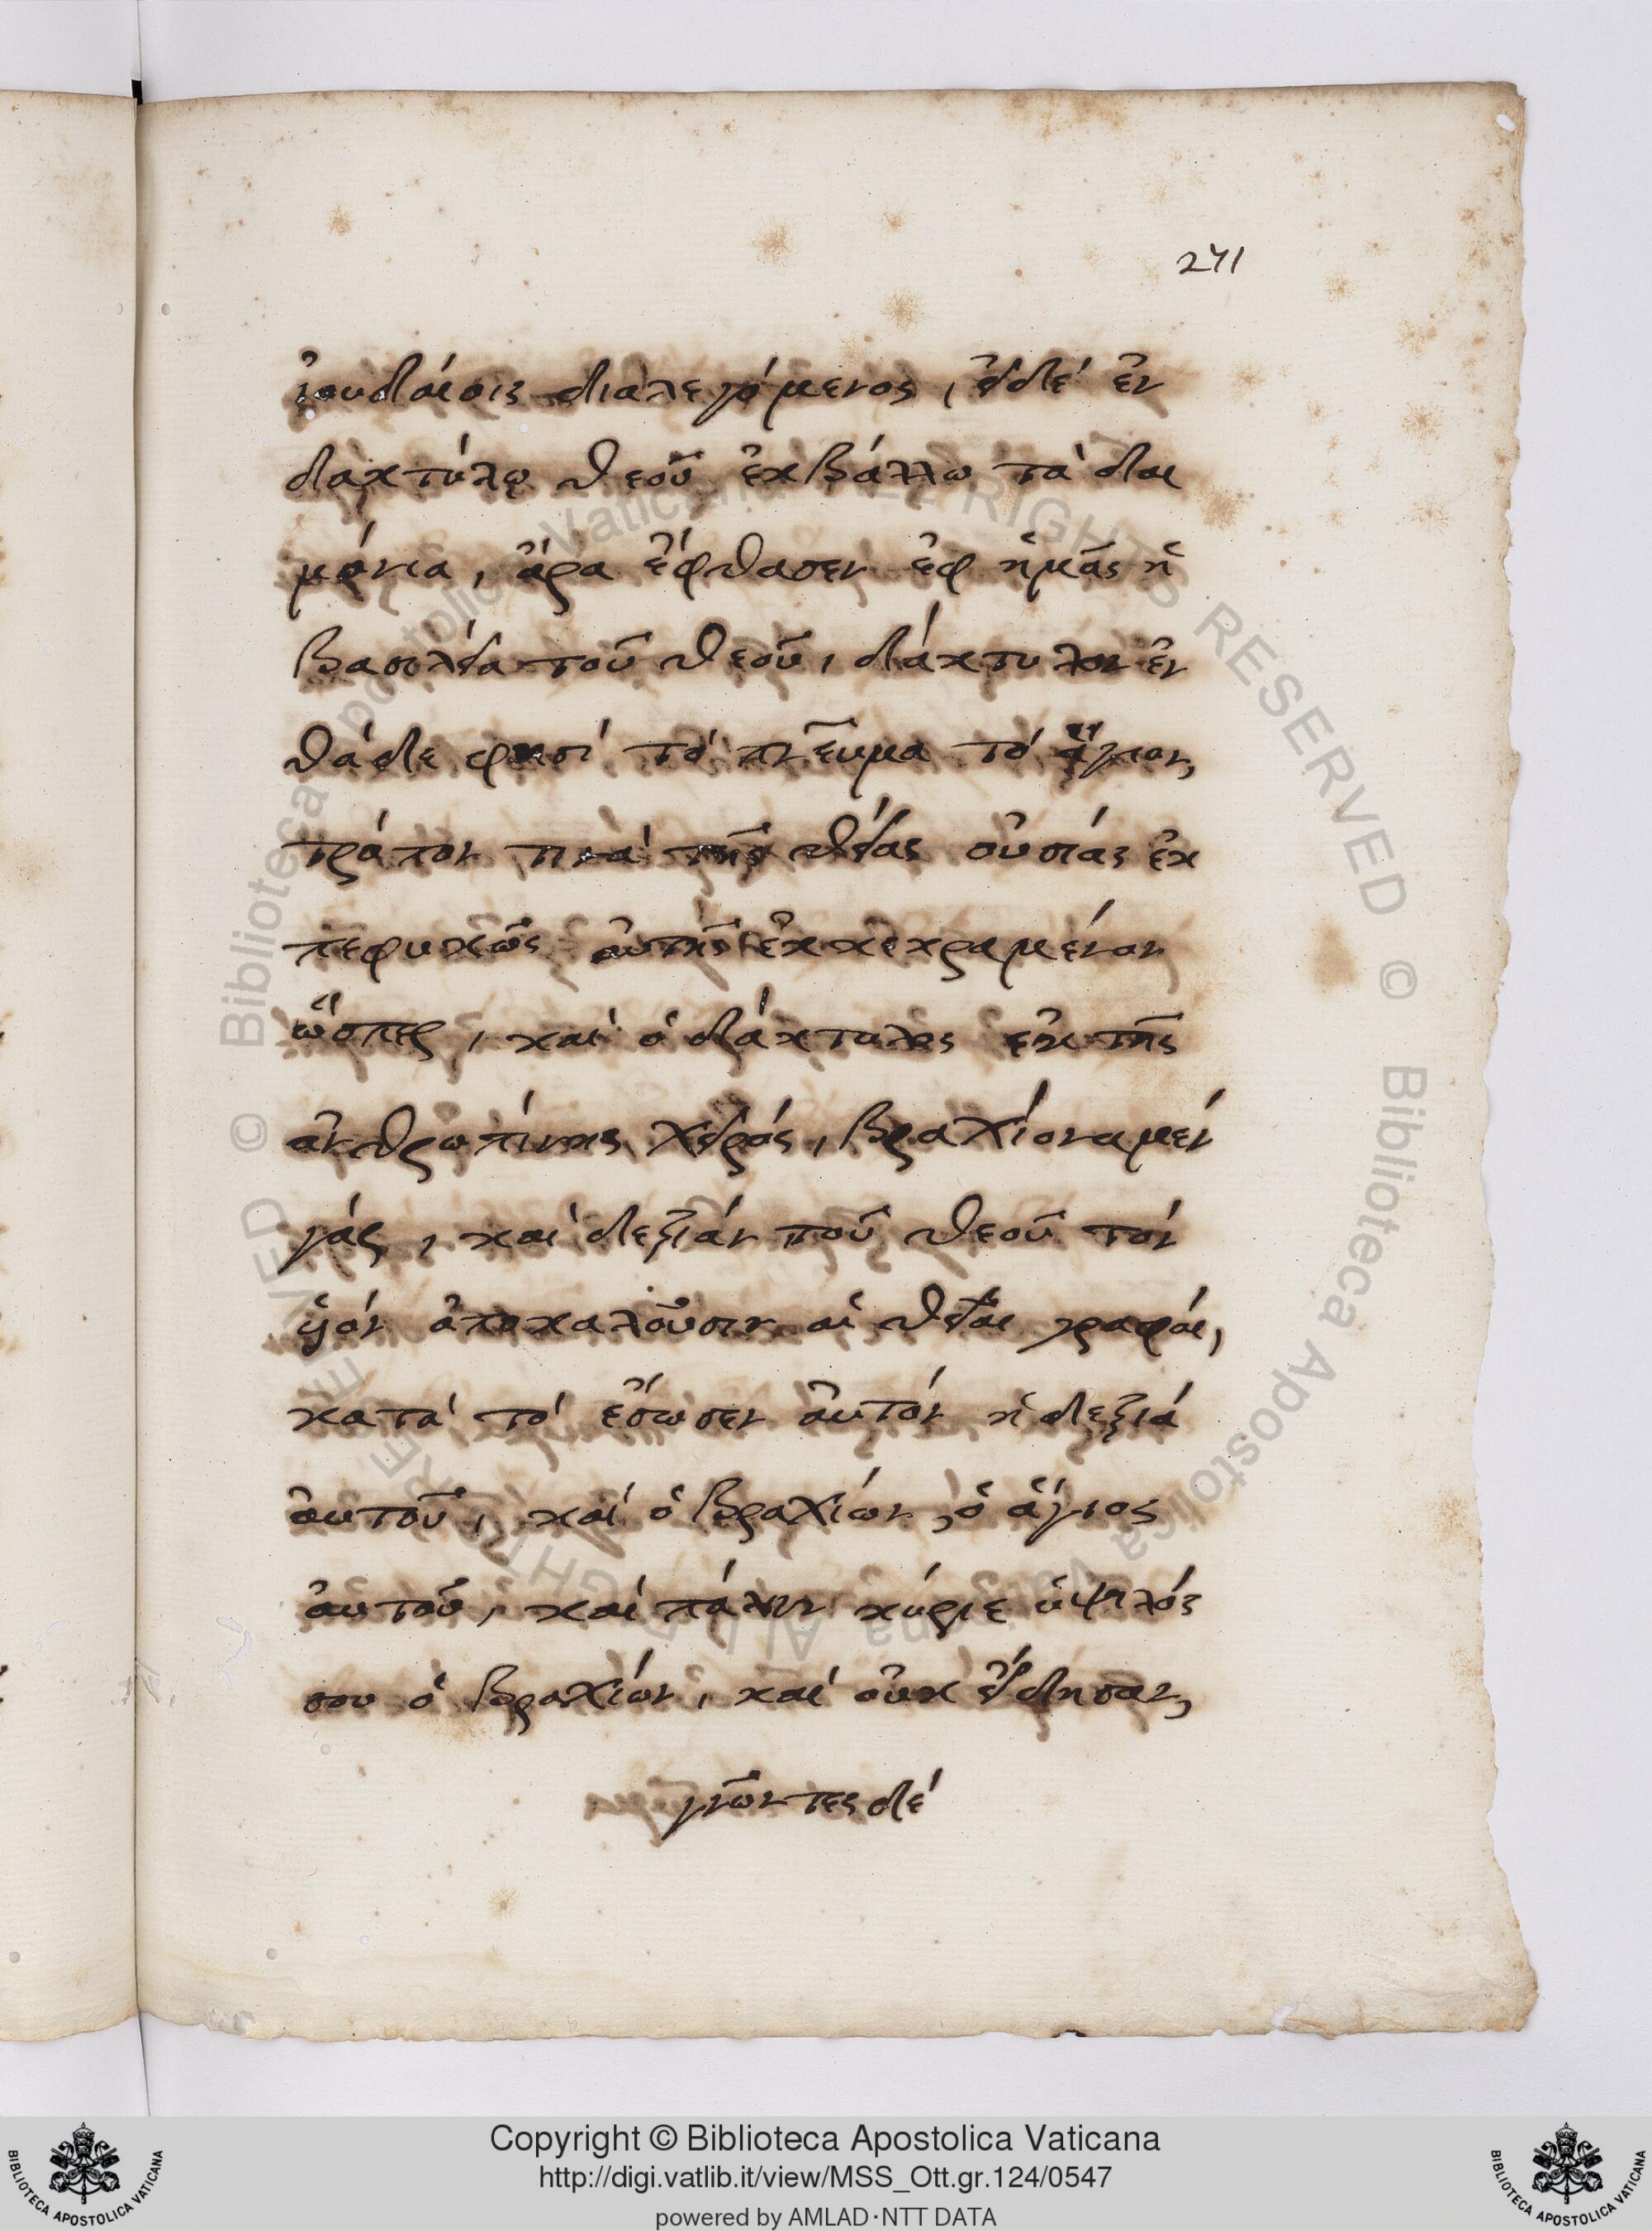 271
ἰουδαίοις διαλεγόμενος, εἰ δὲ ἐν
δακτύλῳ θεοῦ ἐκβάλλω τὰ δαι
μόνια, ἄρα ἔφθασεν ἐφ ἡμᾶς ἡ
βασιλεία τοῦ θεοῦ, δάκτυλον ἐν
θάδε φησί τό πνεῦμα τό ἅγιον,
τρόπον τινά τῆς θείας οὐσίας ἐκ
πεφυκῶς αὐτῆς ἐκκεκραμένον
ὥσπερ, καὶ ὁ δάκτυλος ἐκ τῆς
ἀνθρωπίνης χειρός, βραχίονα μέν
γάρ, καὶ δεξιάν τοῦ θεοῦ τόν
ὑιόν ἀποκαλοῦσιν αἱ θεῖαι γραφαί,
κατά τό ἔσωσεν αὐτόν ἡ δεξιά
αὐτοῦ, καί ὁ βραχίων, ὁ ἅγιος
αὐτοῦ, καί πάλιν κύριε ὑψηλός
σου ὁ βραχίων, καί οὐκ εἴδησαν,
γνῶντες δέ
Copyright © Biblioteca Apostolica Vaticana
http://digi.vatlib.it/view/MSS_Ott.gr.124/0547
powered by AMLAD·NTT DATA
BIBLIOTECA APOSTOLICA VATICANA
BIBLIOTECA APOSTOLICA VATICANA